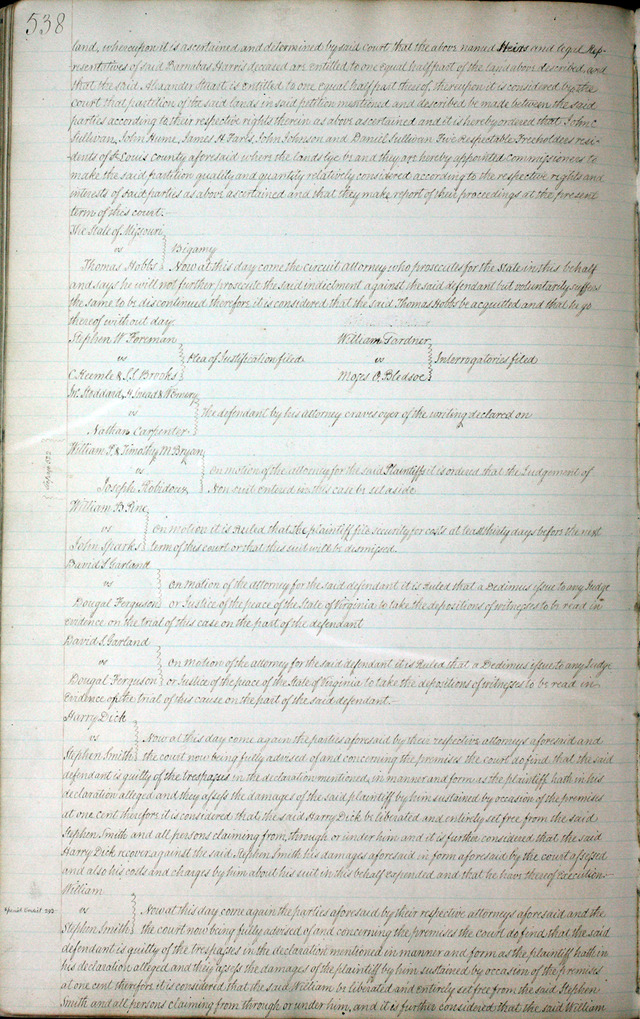 538
land, whereupon it is ascertained and determined by said court that the above named Heirs and legal Rep-
resentatives of said Barnabas Harris deceased are entitled to one equal half part of the land above described, and
that the said Alexander Stuart is entitled to one equal half part thereof, thereupon it is considered by the
court that partition of the said lands in said petition mentioned and described be made between the said
parties according to their respective rights therein as above ascertained and it is hereby ordered that John C
Sullivan, John Hume, James H. Parks, John Johnson and Daniel Sullivan Five Respectable Freeholders resi-
dents of St Louis County aforesaid where the lands lye be and they are hereby appointed commissioners to
make the said partition quality and quantity relatively considered according to the respective rights and
interests of said parties as above ascertained and that they make report of their proceedings at the present
term of this court.
The State of Missouri
vs Bigamy
Thomas Hobbs Now at this day come the circuit attorney who prosecutes for the State in this behalf
and says he will not further prosecute the said indictment against the said defendant but voluntarily suffers
the same to be discontinued therefore it is considered that the said Thomas Hobbs be acquitted and that he go
thereof without day.
Stephen W Foreman
vs Plea of Justification filed
C Heimle & S.S. Brooks
William Gardner
vs Interrogatories filed
Moses O. Bledsoe
Stoddard, &
vs The defendant by his attorney craves oyer of the writing declared on
Nathan Carpenter
William P. & Timothy M Bryan
vs On motion of the attorney for the said Plaintiffs it is ordered that the Judgement of
Joseph Robidoux Non suit entered in this case be set aside
William B. Pine
vs On motion it is Ruled that the plaintiff file security for costs at least thirty days before the next
John Sparks term of this court or that this suit will be dismissed.
David S. Garland
vs On motion of the attorney for the said defendant it is Ruled that a Dedimus issue to any Judge
Dougal Ferguson or Justice of the peace of the State of Virginia to take the depositions of witnesses to be read in
evidence on the trial of this case on the part of the defendant
David S. Garland
vs On motion of the attorney for the said defendant it is Ruled that a Dedimus issue to any Judge
Dougal Ferguson or Justice of the peace of the State of Virginia to take the depositions of witnesses to be read in
evidence of the trial of this cause on the part of the said defendant.
Harry Dick
vs Now at this day come again the parties aforesaid by their respective attorneys aforesaid and
Stephen Smith the court now being fully advised of and concerning the premises the court do find that the said
defendant is guilty of the trespasses in the declaration mentioned, in manner and form as the plaintiff hath in his
declaration alleged and they assess the damages of the said plaintiff by him sustained by occasion of the premises
at one cent therefore it is considered that the said Harry Dick be liberated and entirely set free from the said
Stephen Smith and all persons claiming from, through or under him and it is further considered that the said
Harry Dick recover against the said Stephen Smith his damages aforesaid in form aforesaid by the court assessed
and also his costs and charges by him about his suit in this behalf expended and that he have thereof Execution
William
vs Now at this day come again the parties aforesaid by their respective attorneys aforesaid and the
Stephen Smith the court now being fully advised of and concerning the premises the court do find that the said
defendant is guilty of the trespasses in the declaration mentioned in manner and form as the plaintiff hath in
his declaration alleged and they assess the damages of the plaintiff by him sustained by occasion of the premises
at one cent therefore it is considered that the said William be liberated and entirely set free from the said Stephen
Smith and all persons claiming from through or under him, and it is further considered that the said William